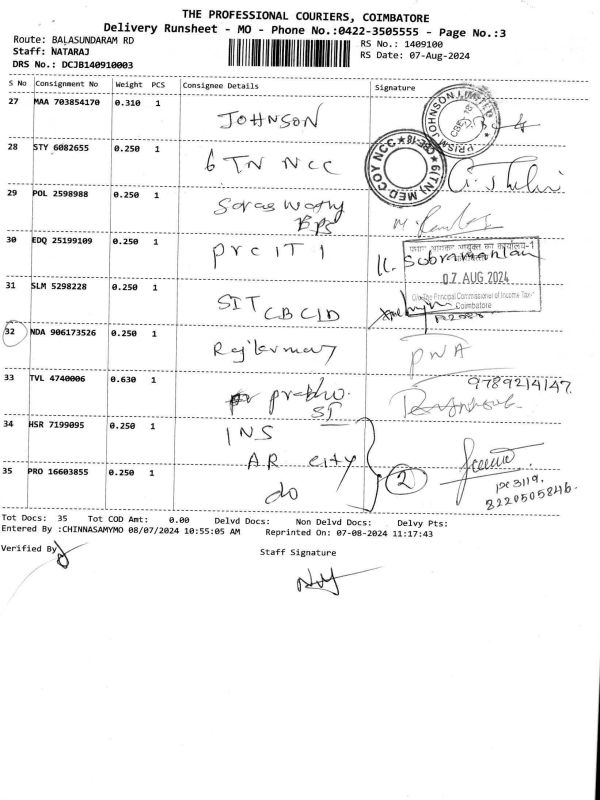 THE PROFESSIONAL COURIERS, COIMBATORE
Delivery Runsheet - MO - Phone No.:0422-3505555 - Page No.:3
Route: BALASUNDARAM RD
RS No.: 1409100
Staff: NATARAJ
RS Date: 07-Aug-2024
DRS No.: DCJB140910003
S No Consignment No Weight PCS Consignee Details Signature
27 MAA 703854170 0.310 1 JOHNSON
PRISM JOHNSON LIMITED
28 STY 6082655 0.250 1 6 TN NCC
6(TN) MED COY NCC
29 POL 2598988 0.250 1 Saraswathy
30 EDQ 25199109 0.250 1 PrC IT 1
K. Subramanian
07 AUG 2024
O/o the Principal Commissioner of Income Tax-1
Coimbatore
31 SLM 5298228 0.250 1 SIT CBCID
32 NDA 906173526 0.250 1 Rajkumar
PNA
33 TVL 4740006 0.630 1 prabhu. SI
9789214147.
34 HSR 7199095 0.250 1 INS
AR city
35 PRO 16603855 0.250 1 do
2
PC 3119.
8220505846.
Tot Docs: 35 Tot COD Amt: 0.00 Delvd Docs: Non Delvd Docs: Delvy Pts:
Entered By :CHINNASAMYMO 08/07/2024 10:55:05 AM Reprinted On: 07-08-2024 11:17:43
Verified By
Staff Signature